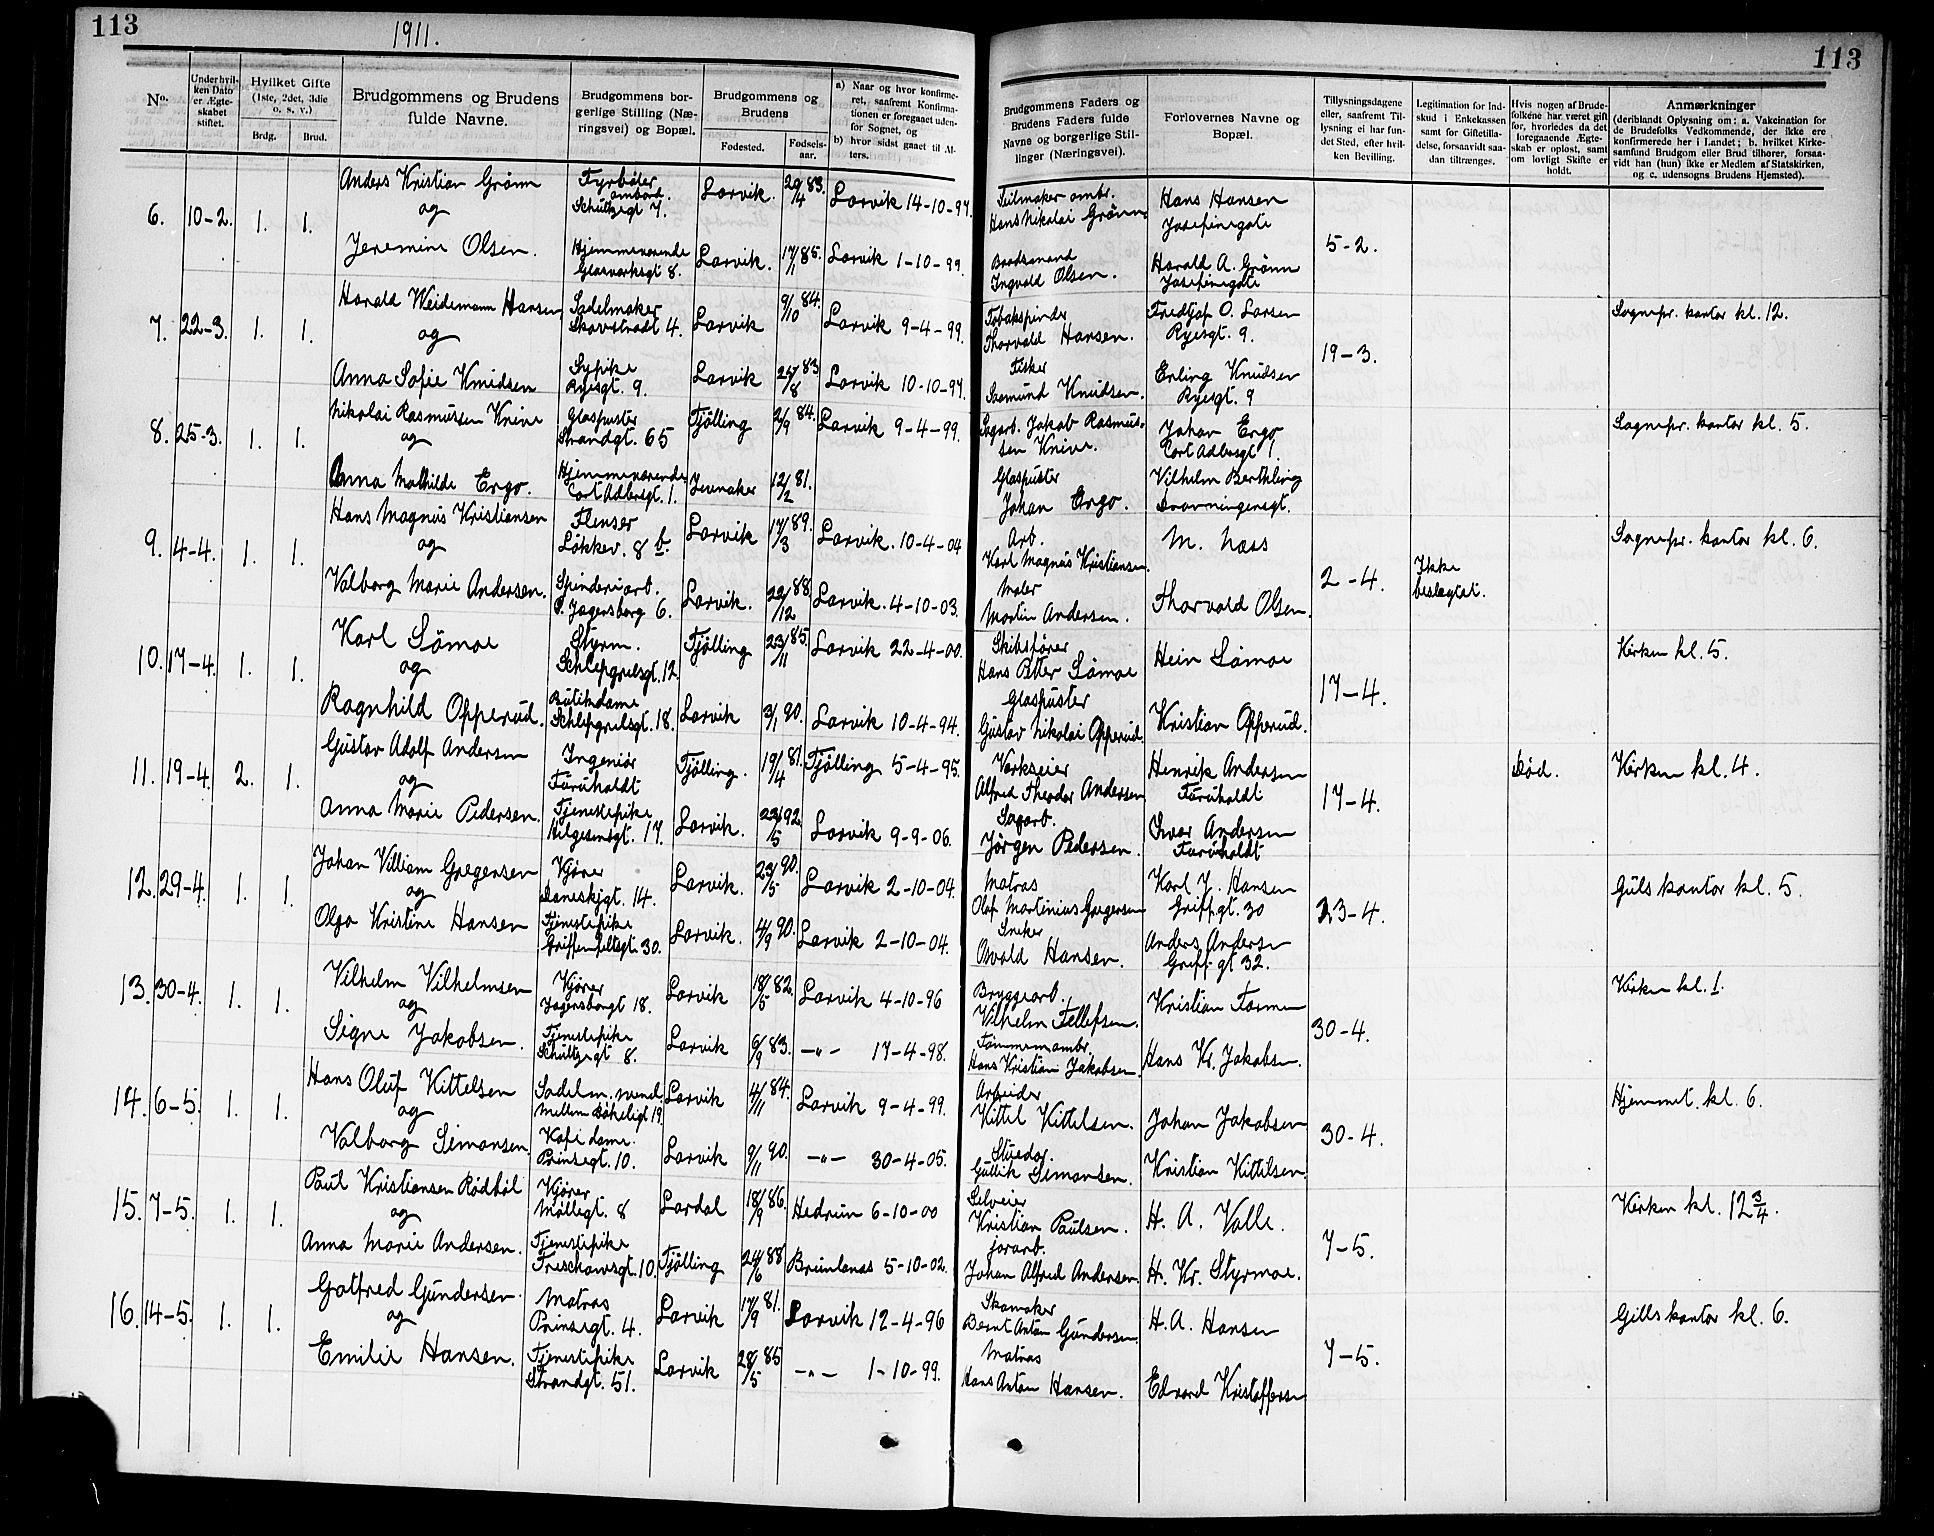 113
1911.
113
No.
Under hvilken Dato er Ægteskabet stiftet.
Hvilket Gifte (1ste, 2det, 3die o. s. v.)
Brdg.
Brud.
Brudgommens og Brudens fulde Navne.
Brudgommens borgerlige Stilling (Næringsvei) og Bopæl.
Brudgommens og Brudens
Fødested.
Fødselsaar.
a) Naar og hvor konfirmeret, saafremt Konfirmationen er foregaaet udenfor Sognet, og
b) hvor sidst gaaet til Alters.
Brudgommens Faders og Brudens Faders fulde Navne og borgerlige Stillinger (Næringsvei).
Forlovernes Navne og Bopæl.
Tillysningsdagene eller, saafremt Tillysning ei har fundet Sted, efter hvilken Bevilling.
Legitimation for Indskud i Enkekassen samt for Giftetilladelse, forsaavidt saadan tiltrænges.
Hvis nogen af Brudefolkene har været gift før, hvorledes da det foregaaende Ægteskab er opløst, samt om lovligt Skifte er holdt.
Anmærkninger
(deriblandt Oplysning om: a. Vakcination for de Brudefolks Vedkommende, der ikke ere konfirmerede her i Landet; b. hvilket Kirkesamfund Brudgom eller Brud tilhører, forsaavidt han (hun) ikke er Medlem af Statskirken, og c. udensogns Brudens Hjemsted).
6. 10-2. 1. 1. Anders Kristian Grönn Fyrböter ombord. Schultzegt 7. Larvik. 29/4 83. Larvik 14-10-97. Seilmaker ambr. Hans Nikolai Grönn Hans Hansen Josefinegate
og
Jeremine Olsen. Hjemmeværende Glasværksgt 8. Larvik. 17/1 85. Larvik 1-10-99. Baadsmand Ingvald Olsen. Harald A. Grönn Josefinegate 5-2.
7. 22-3. 1. 1. Harald Weidemann Hansen Sadelmaker 4. Larvik 9/10 84. Larvik 9-4-99. Tobakspinder Thorvald Hansen. Fredtjof O. Larsen Ryesgt. 9. 19-3. Sognepr. kontor kl. 12.
og
Anna Sofie Knudsen Sypike Ryesgt. 9. Larvik 25/8 83 Larvik 10-10-97. Fisker Sæmund Knudsen. Erling Knudsen Ryesgt. 9
8. 25-3. 1. 1. Nikolai Rasmusen Knive Glaspuster Strandgt. 65 Tjölling 2/9 84. Larvik 9-4-99. Jakob Rasmussen Knive. Johan Ergo Cort Adlersgt 1. Sognepr. kontor kl. 5.
og
Anna Mathilde Ergo. Hjemmeværende Cort Adlersgt. 1. Jevnaker 12/2 81. Glaspuster Johan Ergo. Vilhelm Berthling Dronningensgt.
9. 4-4. 1. 1. Hans Magnus Kristiansen Flenser Lökkev. 8 b. Larvik 17/3 89. Larvik. 10-4-04 Arb. Karl Magnus Kristiansen. M. Næss 2-4. Ikke beslegtet. Sognepr. kontor kl. 6.
og
Valborg Marie Andersen. Spinderiarb. Jagersborg 6. Larvik. 22/12 88 Larvik. 4-10-03. Maler Martin Andersen. Thorvald Olsen.
10. 17-4. 1. 1. Karl Sömoe Styrm. Schlepgrelsgt. 12 Tjölling 23/11 85. Larvik 22-4-00. Skibsförer Hans Peter Sömoe Hein Sömoe 17-4. Kirken kl. 5.
og
Ragnhild Opperud. Butikdame Schlepgrelsgt. 18. Larvik 3/1 90. Larvik 10-4-94. Glaspuster Gustav Nikolai Opperud. Kristian Opperud.
11. 19-4. 2. 1. Gustav Adolf Andersen Ingeniör Furuholdt Tjölling. 19/4 81. Tjölling 5-4-95. Verkseier Alfred Theodor Andersen Henrik Andersen Furuholdt 17-4. Död. Kirken kl. 4.
og
Anna Marie Pedersen. Tjenestepike Helgesensgt. 17. Larvik. 23/5 92 Larvik 9-9-06. Sagarb. Jörgen Pedersen. Ivar Andersen Furuholdt
12. 29-4. 1. 1. Johan Villiam Gregersen Kjörer Daneskjgt. 14. Larvik. 23/5 90. Larvik 2-10-04. Matros Olaf Martinius Gregersen Karl J. Hansen Griff.gt. 30 23-4. Guls kontor kl. 5.
og
Olga Kristine Hansen Tjenestepike Griffenfeltsgt. 30. Larvik. 4/9 90. Larvik 2-10-04. Sneker Osvald Hansen. Anders Andersen Griff. gt 32.
13. 30-4. 1. 1. Vilhelm Vilhelmsen Kjörer Jagersborgt 18. Larvik 18/5 82. Larvik 4-10-96 Bryggearb. Vilhelm Tellefsen. Kristian Tormen 30-4. Kirken kl. 1.
og
Signe Jakobsen. Tjenestepike Schultzegt 8. Larvik 6/9 83. -"- 17-4-98. Tömmermambr. Hans Kristian Jakobsen. Hans Kr. Jakobsen.
14. 6-5. 1. 1. Hans Oluf Kittelsen Sadelm. svend. Mellem Bökeligt 19. Larvik 4/11 84. Larvik 9-4-99. Arbeider Kittel Kittelsen. Johan Jakobsen 30-4. Hjemmet. kl. 6.
og
Valborg Simonsen Kafédame. Prinsegt. 10. Larvik 9/11 90. -"- 30-4-05. Stuedor. Gullik Simonsen. Kristian Kittelsen.
15. 7-5. 1. 1. Paul Kristiansen Rödböl Kjörer Möllegt. 8 Lardal 18/9 86. Hedrum 6-10-00 Selveier Kristian Paulsen. H. A. Valle. 7-5. Kirken kl. 12 3/4.
og
Anna Marie Andersen. Tjenestepike Treschowsgt. 10. Tjölling 24/6 88 Brunlanes 5-10-02. jorarb. Johan Alfred Andersen. H. Kr. Styrmoe.
16. 14-5. 1. 1. Gotfred Gundersen. Matros Prinsegt. 4. Larvik 17/9 81. Larvik 12-4-96 Skomaker Bernt Anton Gundersen. H. A. Hansen 7-5. Gills kontor kl. 6.
og
Emilie Hansen. Tjenestepike Strandgt. 51. Larvik 28/5 85 -"- 1-10-99. Matros Hans Anton Hansen. Edvard Kristoffersen